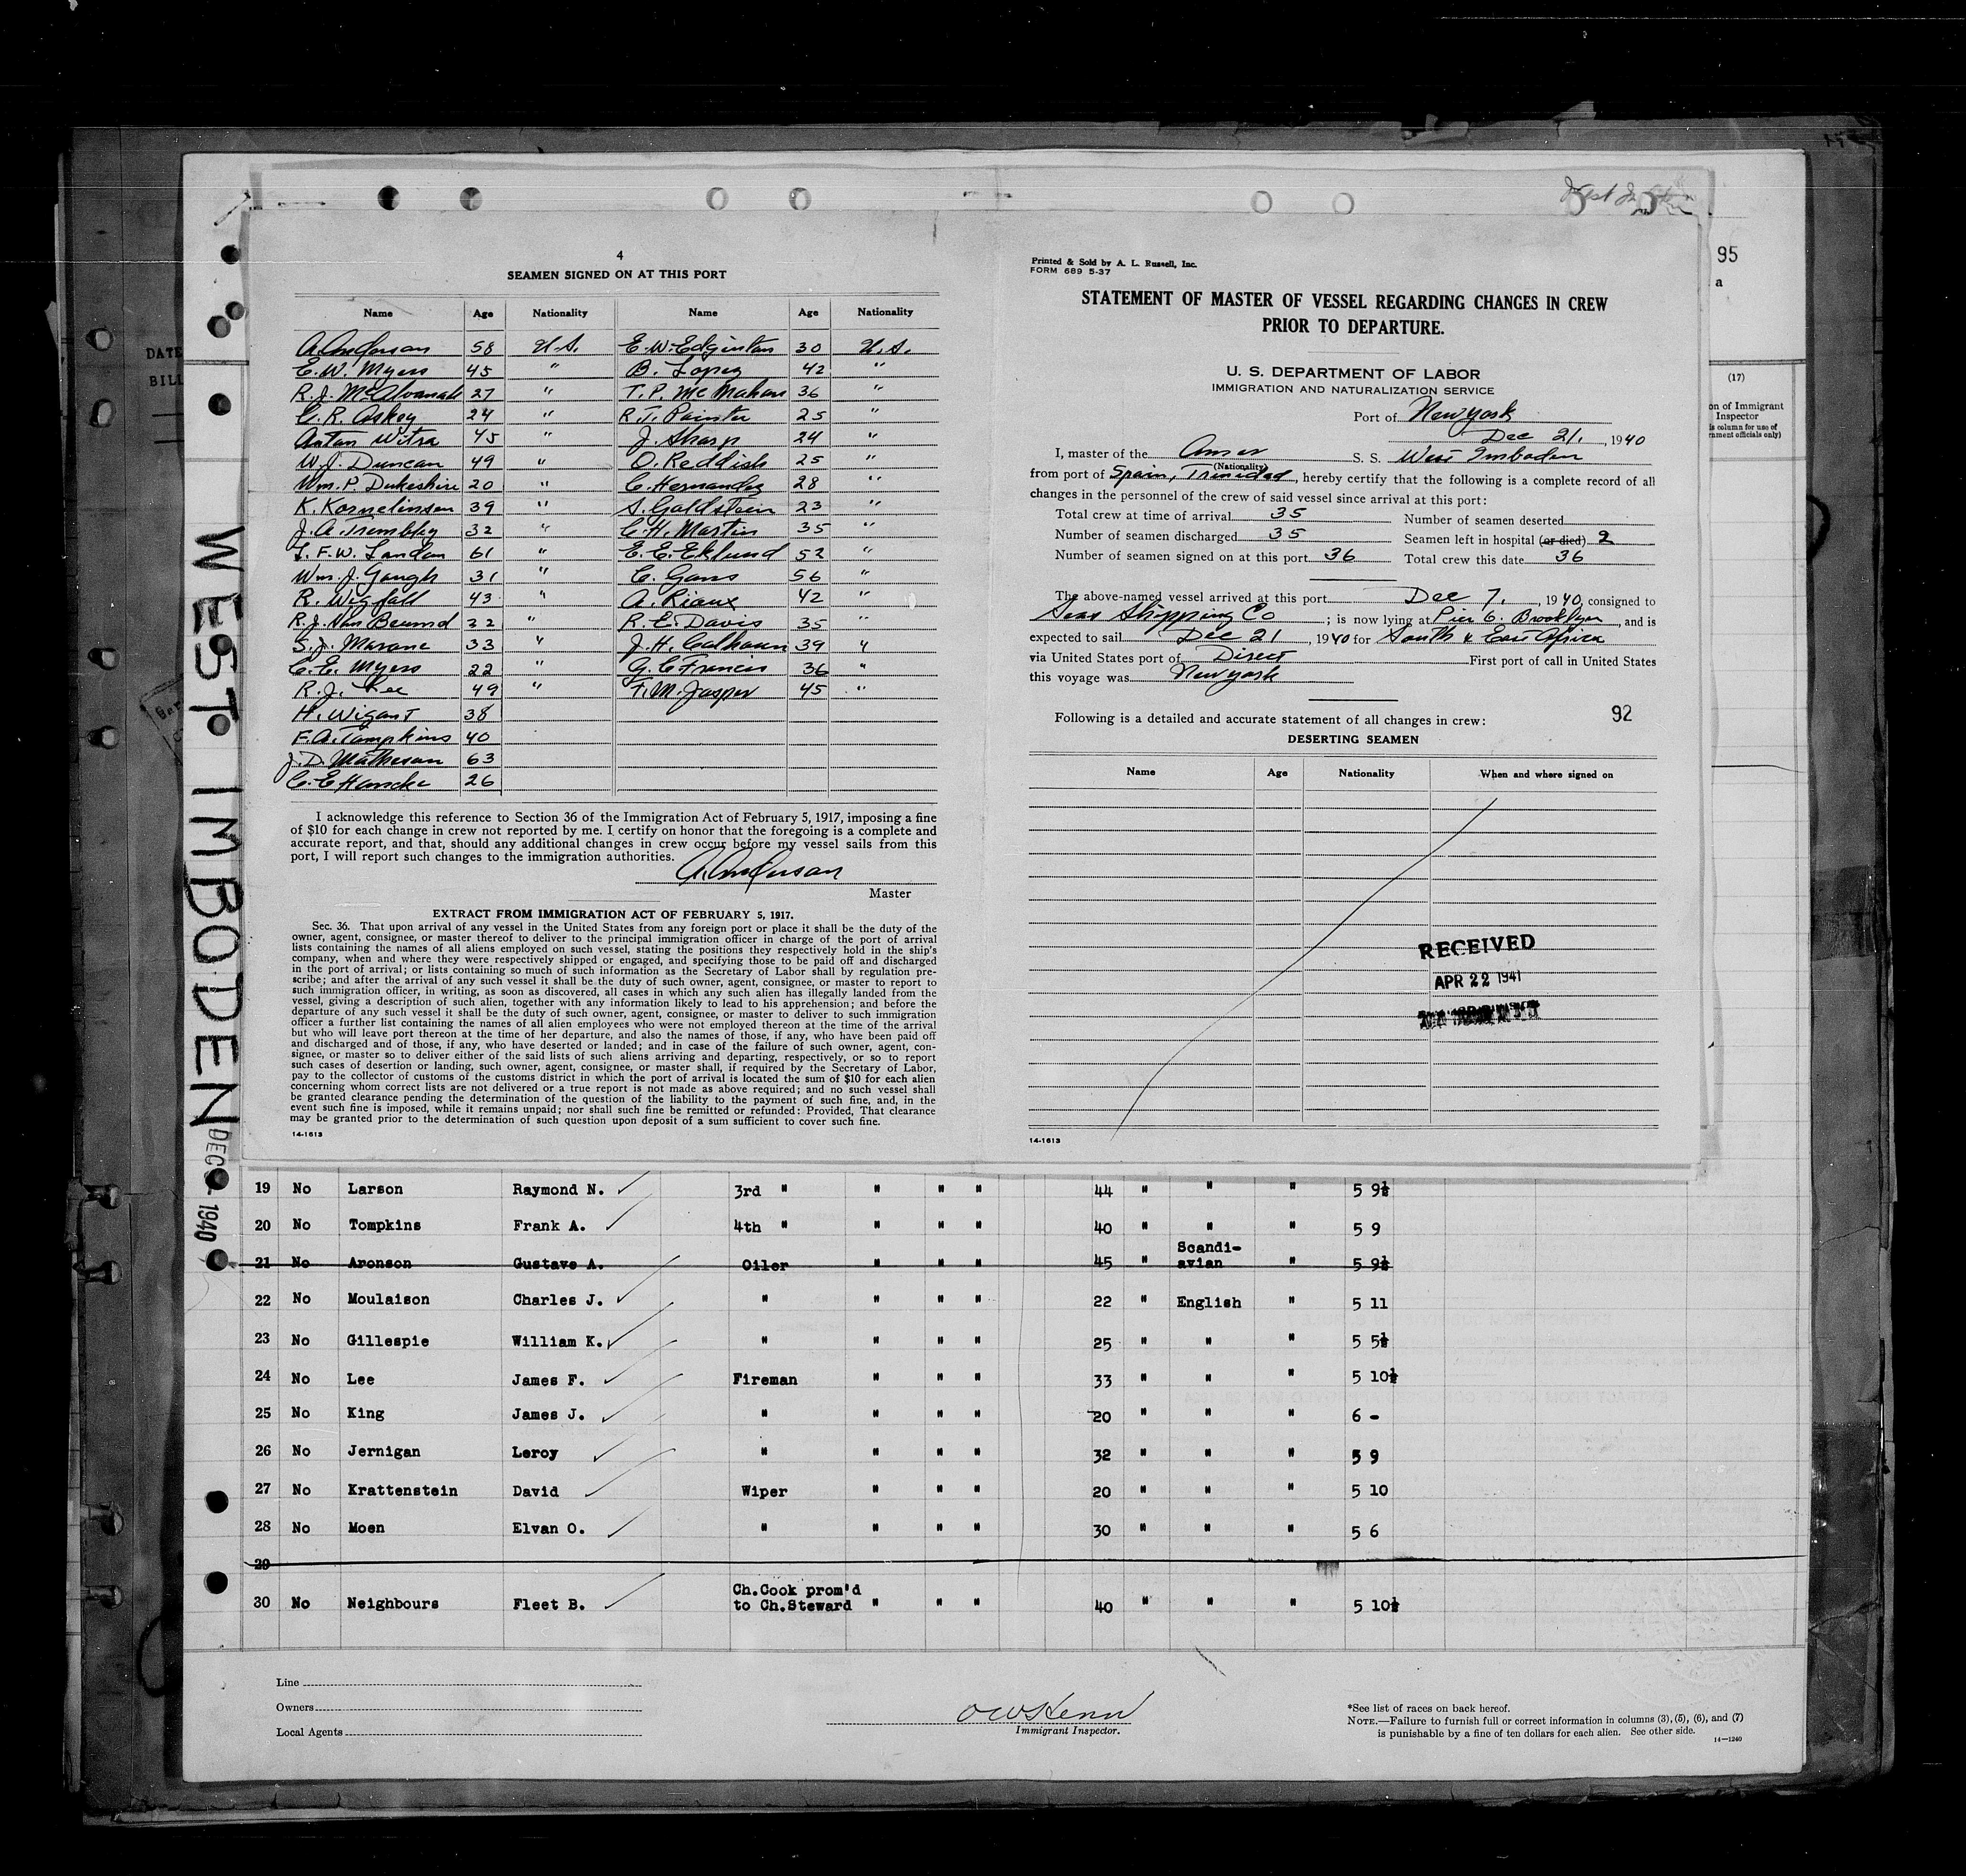 WEST IMBODEN
DEC 1940
DATE
BILL
4
SEAMEN SIGNED ON AT THIS PORT
Name Age Nationality Name Age Nationality
A. Anderson 58 U.S. E.W. Edginton 30 U.S.
E.W. Myers 45 " B. Lopez 42 "
R.J. 27 " T.P. McMahon 36 "
C.R. Askey 24 " R.T. Painter 25 "
Anton Witra 45 " J. Sharp 24 "
W.J. Duncan 49 " O. Reddish 25 "
Wm. P. Dukeshire 20 " C. Hernandez 28 "
K. Kornelinsen 39 " S. Goldstein 23 "
J.A. Trembley 32 " C.H. Martin 35 "
F.W. Landon 61 " E.E. Eklund 52 "
Wm. J. Gough 31 " C. Gans 56 "
R. Wigfall 43 " A. Rioux 42 "
R.J. Van 32 " R.E. Davis 35 "
S.J. Marane 33 " J.H. Calhoun 39 "
C.E. Myers 22 " G.C. Francis 36 "
R.J. Lee 49 " F.M. Jasper 45 "
H. Wigant 38
F.A. Tompkins 40
J.D. Matheson 63
C.E. Hancke 26
I acknowledge this reference to Section 36 of the Immigration Act of February 5, 1917, imposing a fine
of $10 for each change in crew not reported by me. I certify on honor that the foregoing is a complete and
accurate report, and that, should any additional changes in crew occur before my vessel sails from this
port, I will report such changes to the immigration authorities.
A. Anderson
Master
EXTRACT FROM IMMIGRATION ACT OF FEBRUARY 5, 1917.
Sec. 36. That upon arrival of any vessel in the United States from any foreign port or place it shall be the duty of the
owner, agent, consignee, or master thereof to deliver to the principal immigration officer in charge of the port of arrival
lists containing the names of all aliens employed on such vessel, stating the positions they respectively hold in the ship's
company, when and where they were respectively shipped or engaged, and specifying those to be paid off and discharged
in the port of arrival; or lists containing so much of such information as the Secretary of Labor shall by regulation pre-
scribe; and after the arrival of any such vessel it shall be the duty of such owner, agent, consignee, or master to report to
such immigration officer, in writing, as soon as discovered, all cases in which any such alien has illegally landed from the
vessel, giving a description of such alien, together with any information likely to lead to his apprehension; and before the
departure of any such vessel it shall be the duty of such owner, agent, consignee, or master to deliver to such immigration
officer a further list containing the names of all alien employees who were not employed thereon at the time of the arrival
but who will leave port thereon at the time of her departure, and also the names of those, if any, who have been paid off
and discharged and of those, if any, who have deserted or landed; and in case of the failure of such owner, agent, con-
signee, or master so to deliver either of the said lists of such aliens arriving and departing, respectively, or so to report
such cases of desertion or landing, such owner, agent, consignee, or master shall, if required by the Secretary of Labor,
pay to the collector of customs of the customs district in which the port of arrival is located the sum of $10 for each alien
concerning whom correct lists are not delivered or a true report is not made as above required; and no such vessel shall
be granted clearance pending the determination of the question of the liability to the payment of such fine, and, in the
event such fine is imposed, while it remains unpaid; nor shall such fine be remitted or refunded: Provided, That clearance
may be granted prior to the determination of such question upon deposit of a sum sufficient to cover such fine.
14-1613
Printed & Sold by A. L. Russell, Inc.
FORM 689 5-37
STATEMENT OF MASTER OF VESSEL REGARDING CHANGES IN CREW
PRIOR TO DEPARTURE.
U. S. DEPARTMENT OF LABOR
IMMIGRATION AND NATURALIZATION SERVICE
Port of New York
Dec 21, 1940
I, master of the Amer S. S. West Imboden
(Nationality)
from port of Spain, Trinidad, hereby certify that the following is a complete record of all
changes in the personnel of the crew of said vessel since arrival at this port:
Total crew at time of arrival 35 Number of seamen deserted
Number of seamen discharged 35 Seamen left in hospital (or died) 2
Number of seamen signed on at this port 36 Total crew this date 36
The above-named vessel arrived at this port Dec 7, 1940, consigned to
Seas Shipping Co ; is now lying at Pier 6. Brooklyn, and is
expected to sail Dec 21, 1940 for South & East Africa
via United States port of Direct First port of call in United States
this voyage was New York
Following is a detailed and accurate statement of all changes in crew: 92
DESERTING SEAMEN
Name Age Nationality When and where signed on
RECEIVED
APR 22 1941
14-1613
95
a
(17)
on of Immigrant
Inspector
is column for use of
rnment officials only)
19 No Larson Raymond N. 3rd " " " " 44 " " " 5 9½
20 No Tompkins Frank A. 4th " " " " 40 " " " 5 9
21 No Aronson Gustave A. Oiler " " " 45 " Scandi-avian " 5 9½
22 No Moulaison Charles J. " " " " 22 " English " 5 11
23 No Gillespie William K. " " " " 25 " " " 5 5½
24 No Lee James F. Fireman " " " 33 " " " 5 10½
25 No King James J. " " " " 20 " " " 6 -
26 No Jernigan Leroy " " " " 32 " " " 5 9
27 No Krattenstein David Wiper " " " 20 " " " 5 10
28 No Moen Elvan O. " " " " 30 " " " 5 6
29
30 No Neighbours Fleet B. Ch.Cook prom'd to Ch.Steward " " " 40 " " " 5 10½
Line
Owners
Local Agents
Immigrant Inspector.
*See list of races on back hereof.
NOTE.—Failure to furnish full or correct information in columns (3), (5), (6), and (7)
is punishable by a fine of ten dollars for each alien. See other side.
14-1240